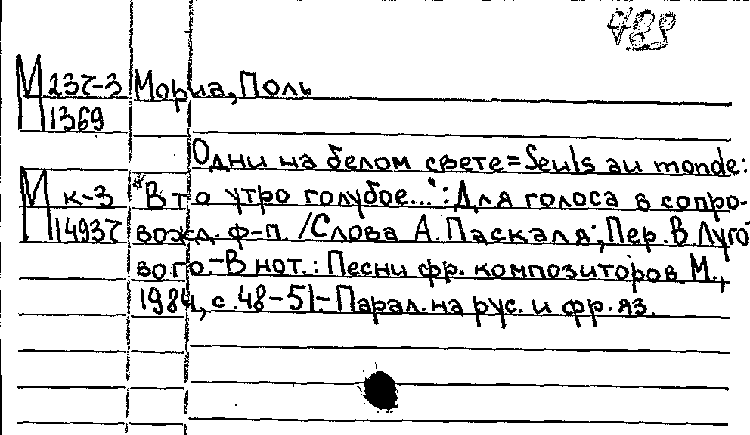 489
М 237-3 Мориа, Поль
1369
Одни на белом свете = Seuls au monde:
М к-3 "В то утро голубое...": Для голоса в сопро-
14937 вожд. ф-п. /Слова А. Паскаля; Пер. В Луго
вого.-В нот.: Песни фр. композиторов М.,
1984, с.48-51.-Парал. на рус. и фр. яз.